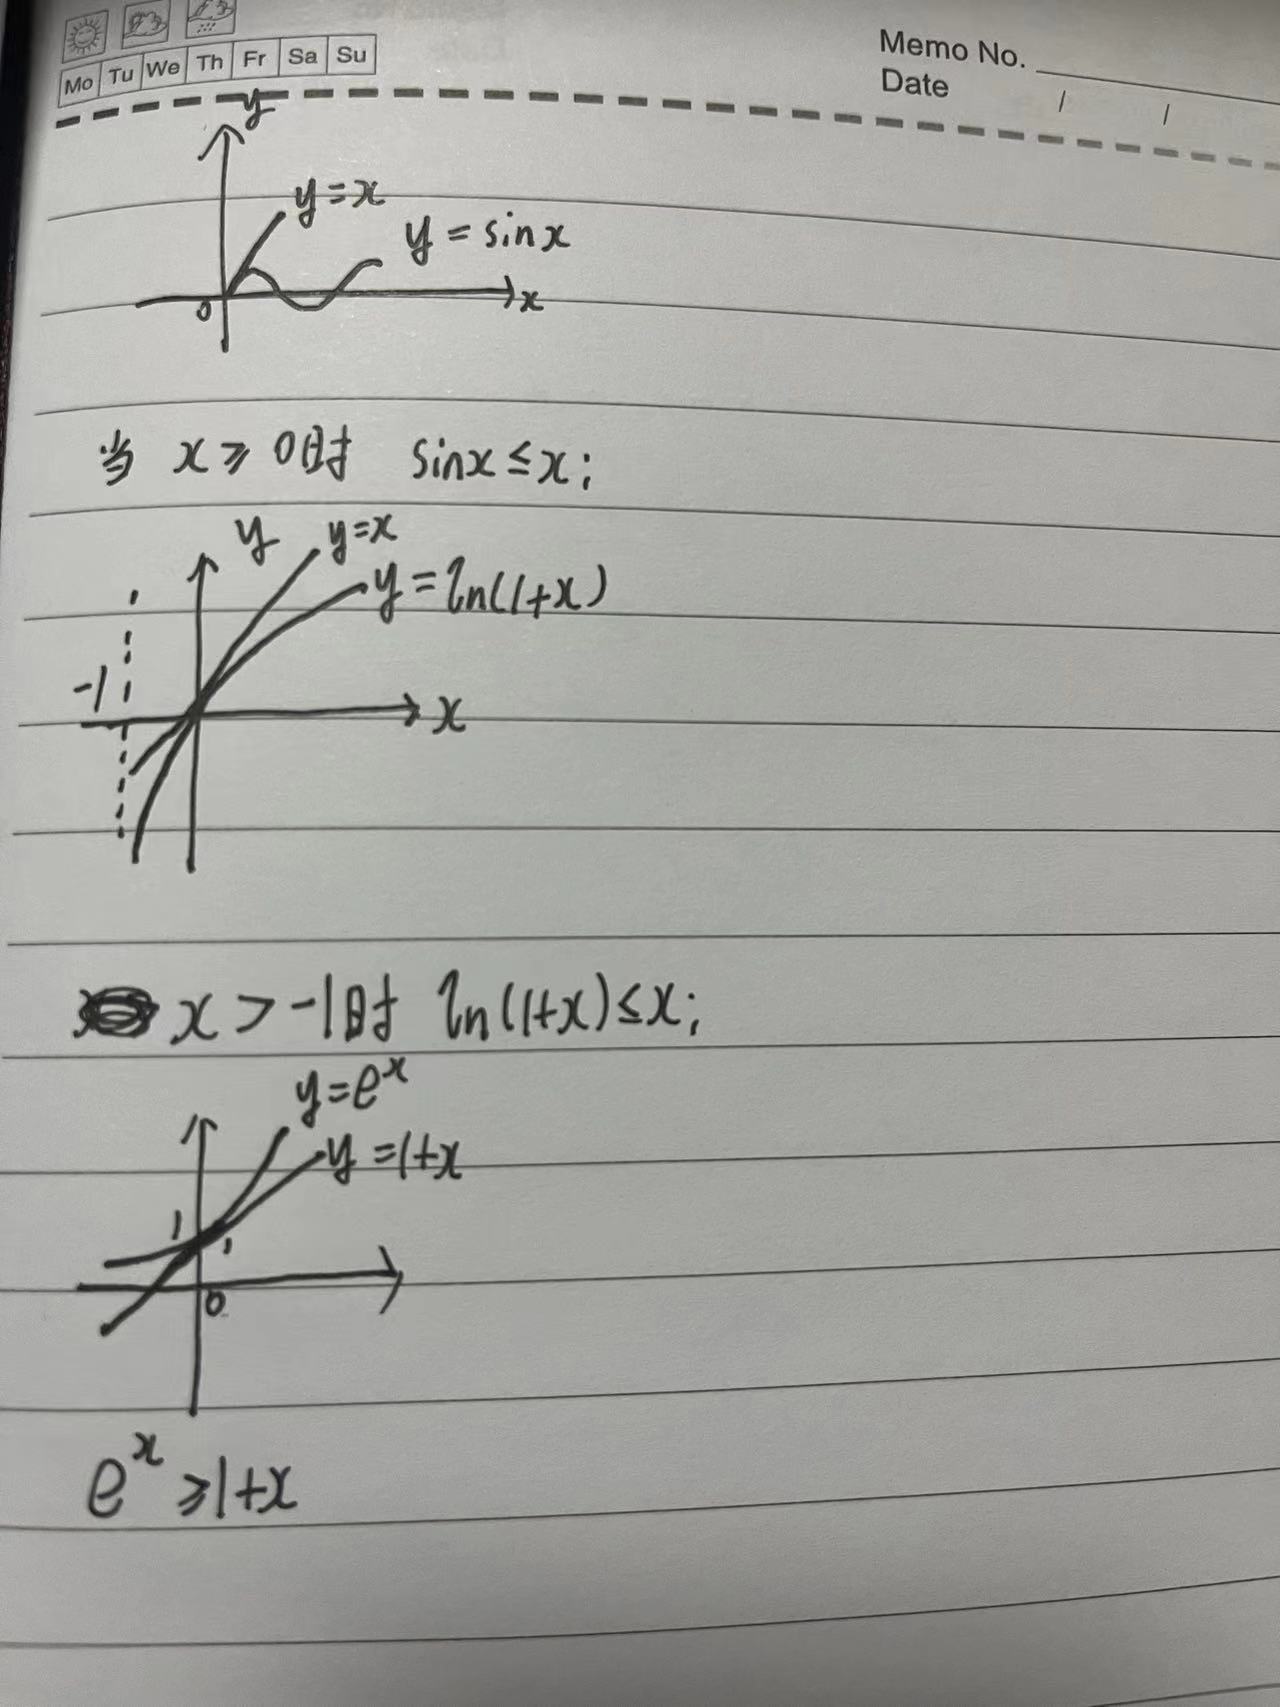 Mo Tu We Th Fr Sa Su
Memo No.
Date / /
y
y=x
y=sinx
0
x
当 x≥0时 sinx≤x;
y
y=x
y=ln(1+x)
-1
x
x>-1时 ln(1+x)≤x;
y=eˣ
y=1+x
1
0
eˣ≥1+x